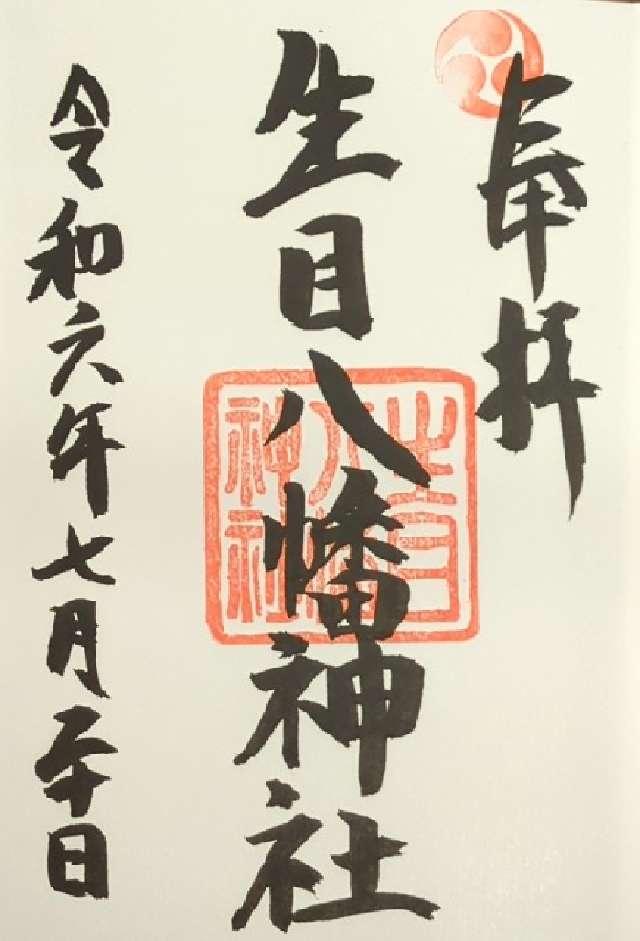 奉拝
生目八幡神社
生目
八幡
神社
令和六年七月二十日